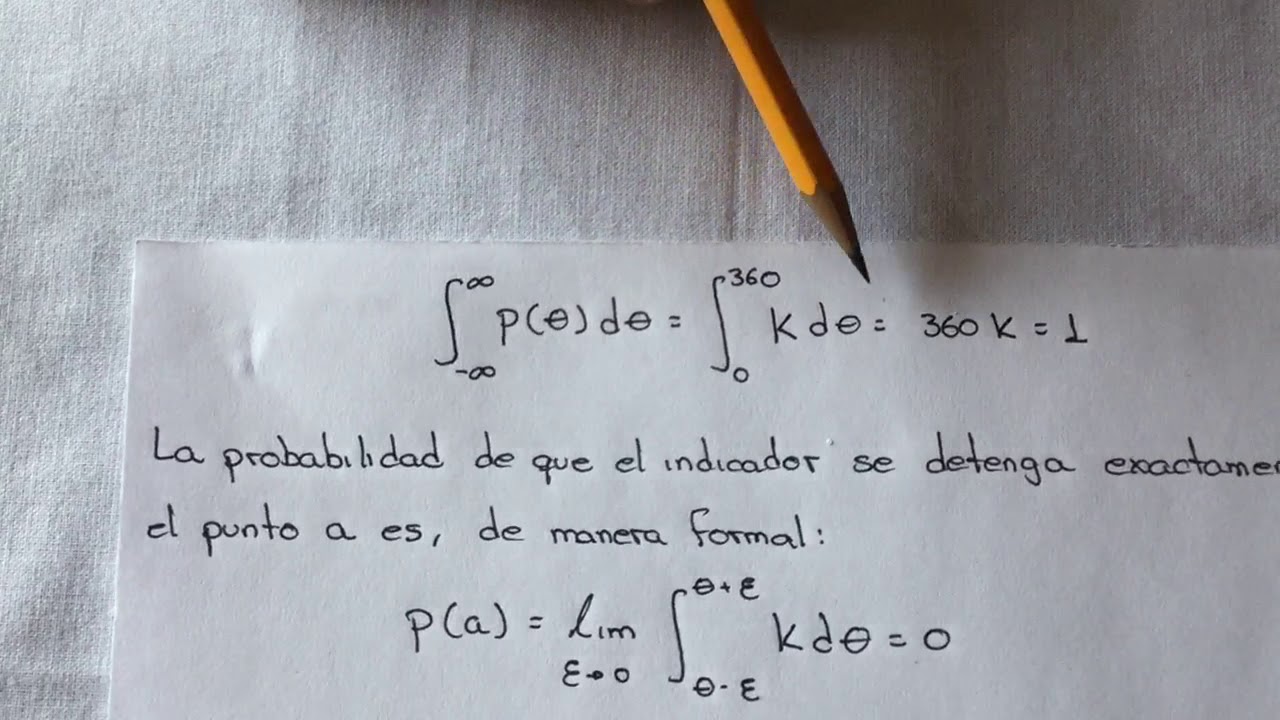 ∫_{-∞}^{∞} p(θ) dθ = ∫_{0}^{360} K dθ = 360 K = 1
La probabilidad de que el indicador se detenga exactamen
el punto a es, de manera formal:
p(a) = lim_{ε→0} ∫_{θ-ε}^{θ+ε} K dθ = 0